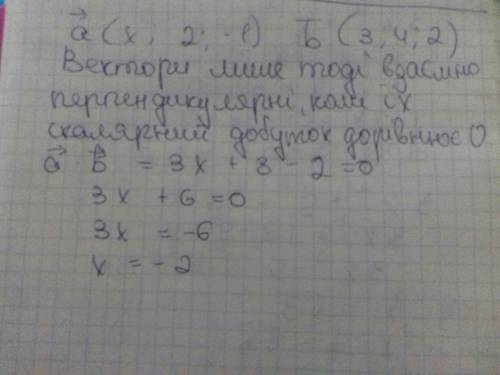 a⃗ (x; 2; -1) b⃗ (3; 4; 2)
Вектори лише тоді вдаємно
перпендикулярні, коли їх
скалярний добуток дорівнює 0
a⃗ · b⃗ = 3x + 8 - 2 = 0
3x + 6 = 0
3x = -6
x = -2